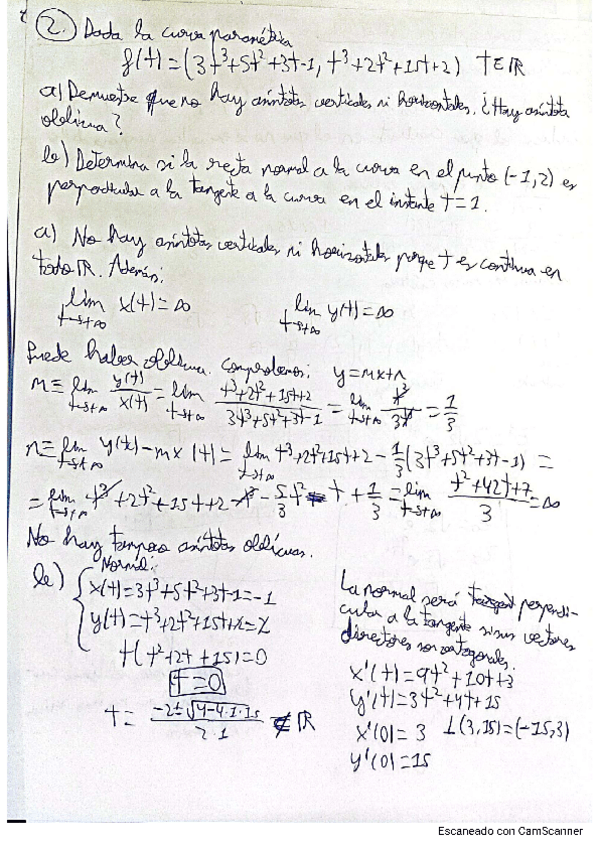 2. Dada la curva paramétrica
f(t)=(3t³+5t²+3t-1, t³+2t²+15t+2) t∈ℝ
a) Demuestre que no hay asíntotas verticales ni horizontales. ¿Hay asíntota
oblicua?
b) Determina si la recta normal a la curva en el punto (-1,2) es
perpendicular a la tangente a la curva en el instante t=1.
a) No hay asíntotas verticales ni horizontales porque t es continua en
todo ℝ. Además:
lim t→∞ x(t)=∞ lim t→∞ y(t)=∞
Puede haber oblicua. Comprobemos: y=mx+n
m≡ lim t→∞ y(t)/x(t) = lim t→∞ (t³+2t²+15t+2)/(3t³+5t²+3t-1) = lim t→∞ t³/3t³ = 1/3
n≡ lim t→∞ y(t)-mx(t) = lim t→∞ t³+2t²+15t+2-1/3(3t³+5t²+3t-1) =
= lim t→∞ t³+2t²+15t+2-t³-5/3t²-t+1/3 = lim t→∞ (t²+42t+7)/3 = ∞
No hay tampoco asíntotas oblicuas.
b) Normal:
x(t)=3t³+5t²+3t-1=-1
y(t)=t³+2t²+15t+2=2
t(t²+2t+15)=0
t=0
t= (-2±√(4-4·1·15))/(2·1) ∉ ℝ
La normal será perpendi-
cular a la tangente si sus vectores
directores son ortogonales.
x'(t)=9t²+10t+3
y'(t)=3t²+4t+15
x'(0)=3 ⊥(3,15)=(-15,3)
y'(0)=15
Escaneado con CamScanner